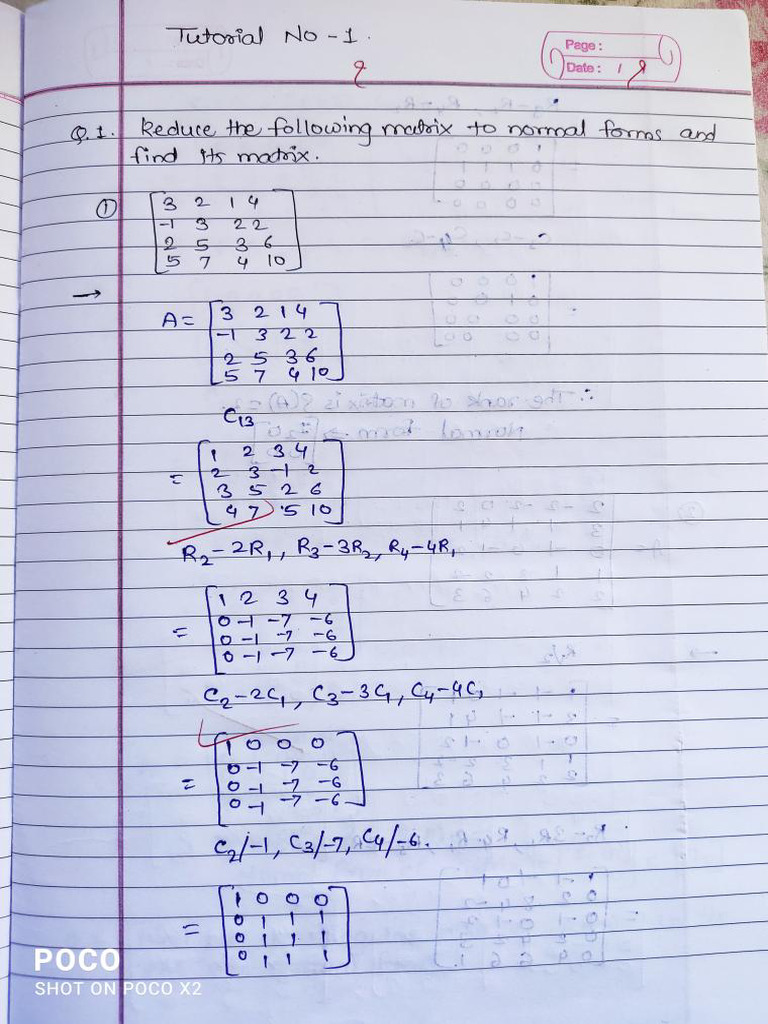 Tutorial No - 1.
Page :
Date : 1
Q.1. Reduce the following matrix to normal forms and
find its matrix.
① [3 2 1 4
-1 3 2 2
2 5 3 6
5 7 4 10]
→
A = [3 2 1 4
-1 3 2 2
2 5 3 6
5 7 4 10]
C₁₃
= [1 2 3 4
2 3 -1 2
3 5 2 6
4 7 5 10]
R₂ - 2R₁, R₃ - 3R₂, R₄ - 4R₁
= [1 2 3 4
0 -1 -7 -6
0 -1 -7 -6
0 -1 -7 -6]
C₂ - 2C₁, C₃ - 3C₁, C₄ - 4C₁
= [1 0 0 0
0 -1 -7 -6
0 -1 -7 -6
0 -1 -7 -6]
C₂/-1, C₃/-7, C₄/-6.
= [1 0 0 0
0 1 1 1
0 1 1 1
0 1 1 1]
POCO
SHOT ON POCO X2